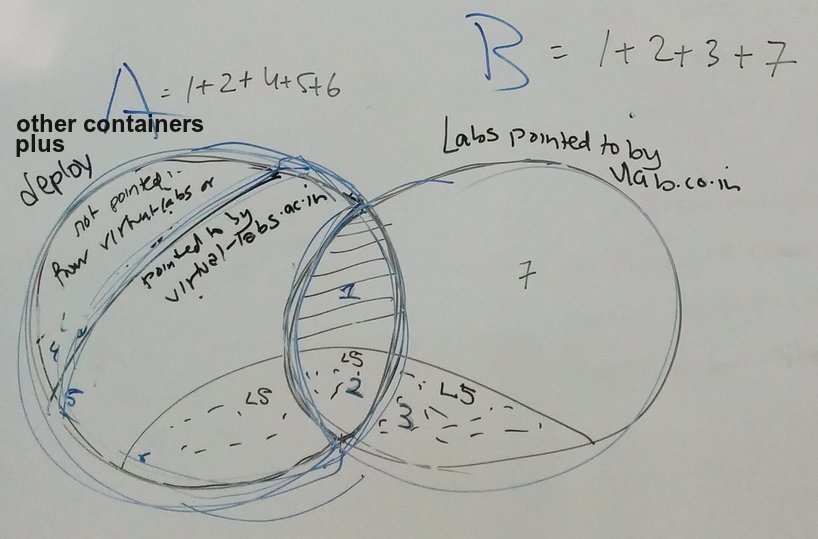 B = 1+2+3+7
A = 1+2+4+5+6
other containers
plus
deploy
Labs pointed to by
vlab.co.in
not pointed :-
from virtual labs or
pointed to by
virtual-labs.ac.in
7
1
4
5
LS
2
LS
LS
3